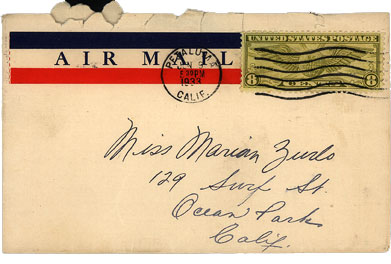 AIR MAIL
UNITED STATES POSTAGE
8 8
PETALUMA
1933
CALIF.
Miss Marian Zurlo
129 Surf St.
Ocean Park
Calif.